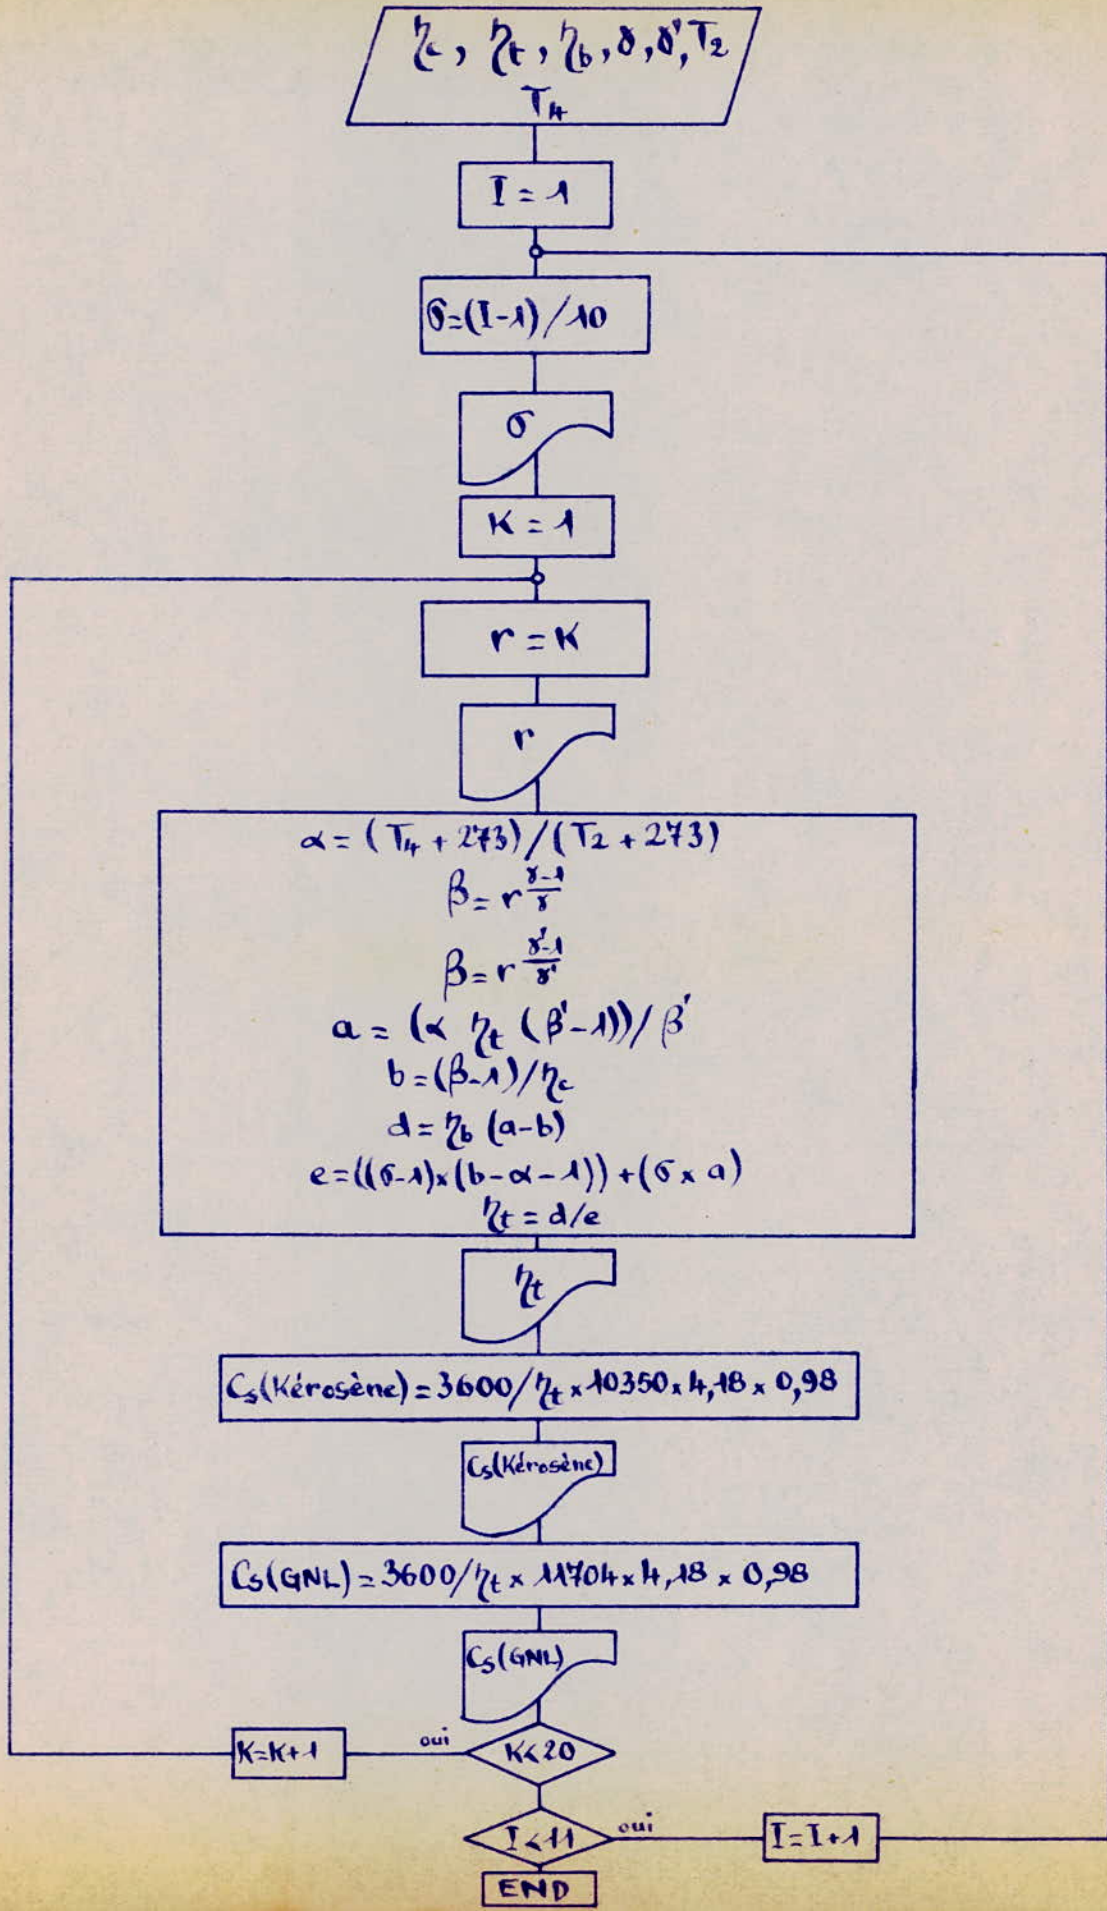 η_c, η_t, η_b, γ, γ', T₂
T₄
I = 1
σ=(I-1)/10
σ
K = 1
r = K
r
α = (T₄ + 273)/(T₂ + 273)
β = r^((γ-1)/γ)
β = r^((γ'-1)/γ')
a = (α η_t (β'-1))/β'
b = (β-1)/η_c
d = η_b (a-b)
e = ((σ-1)×(b-α-1))+(σ × a)
η_t = d/e
η_t
Cs(Kérosène) = 3600/η_t × 10350 × 4,18 × 0,98
Cs(Kérosène)
Cs(GNL) = 3600/η_t × 11704 × 4,18 × 0,98
Cs(GNL)
K=K+1 oui K<20
I<11 oui I=I+1
END